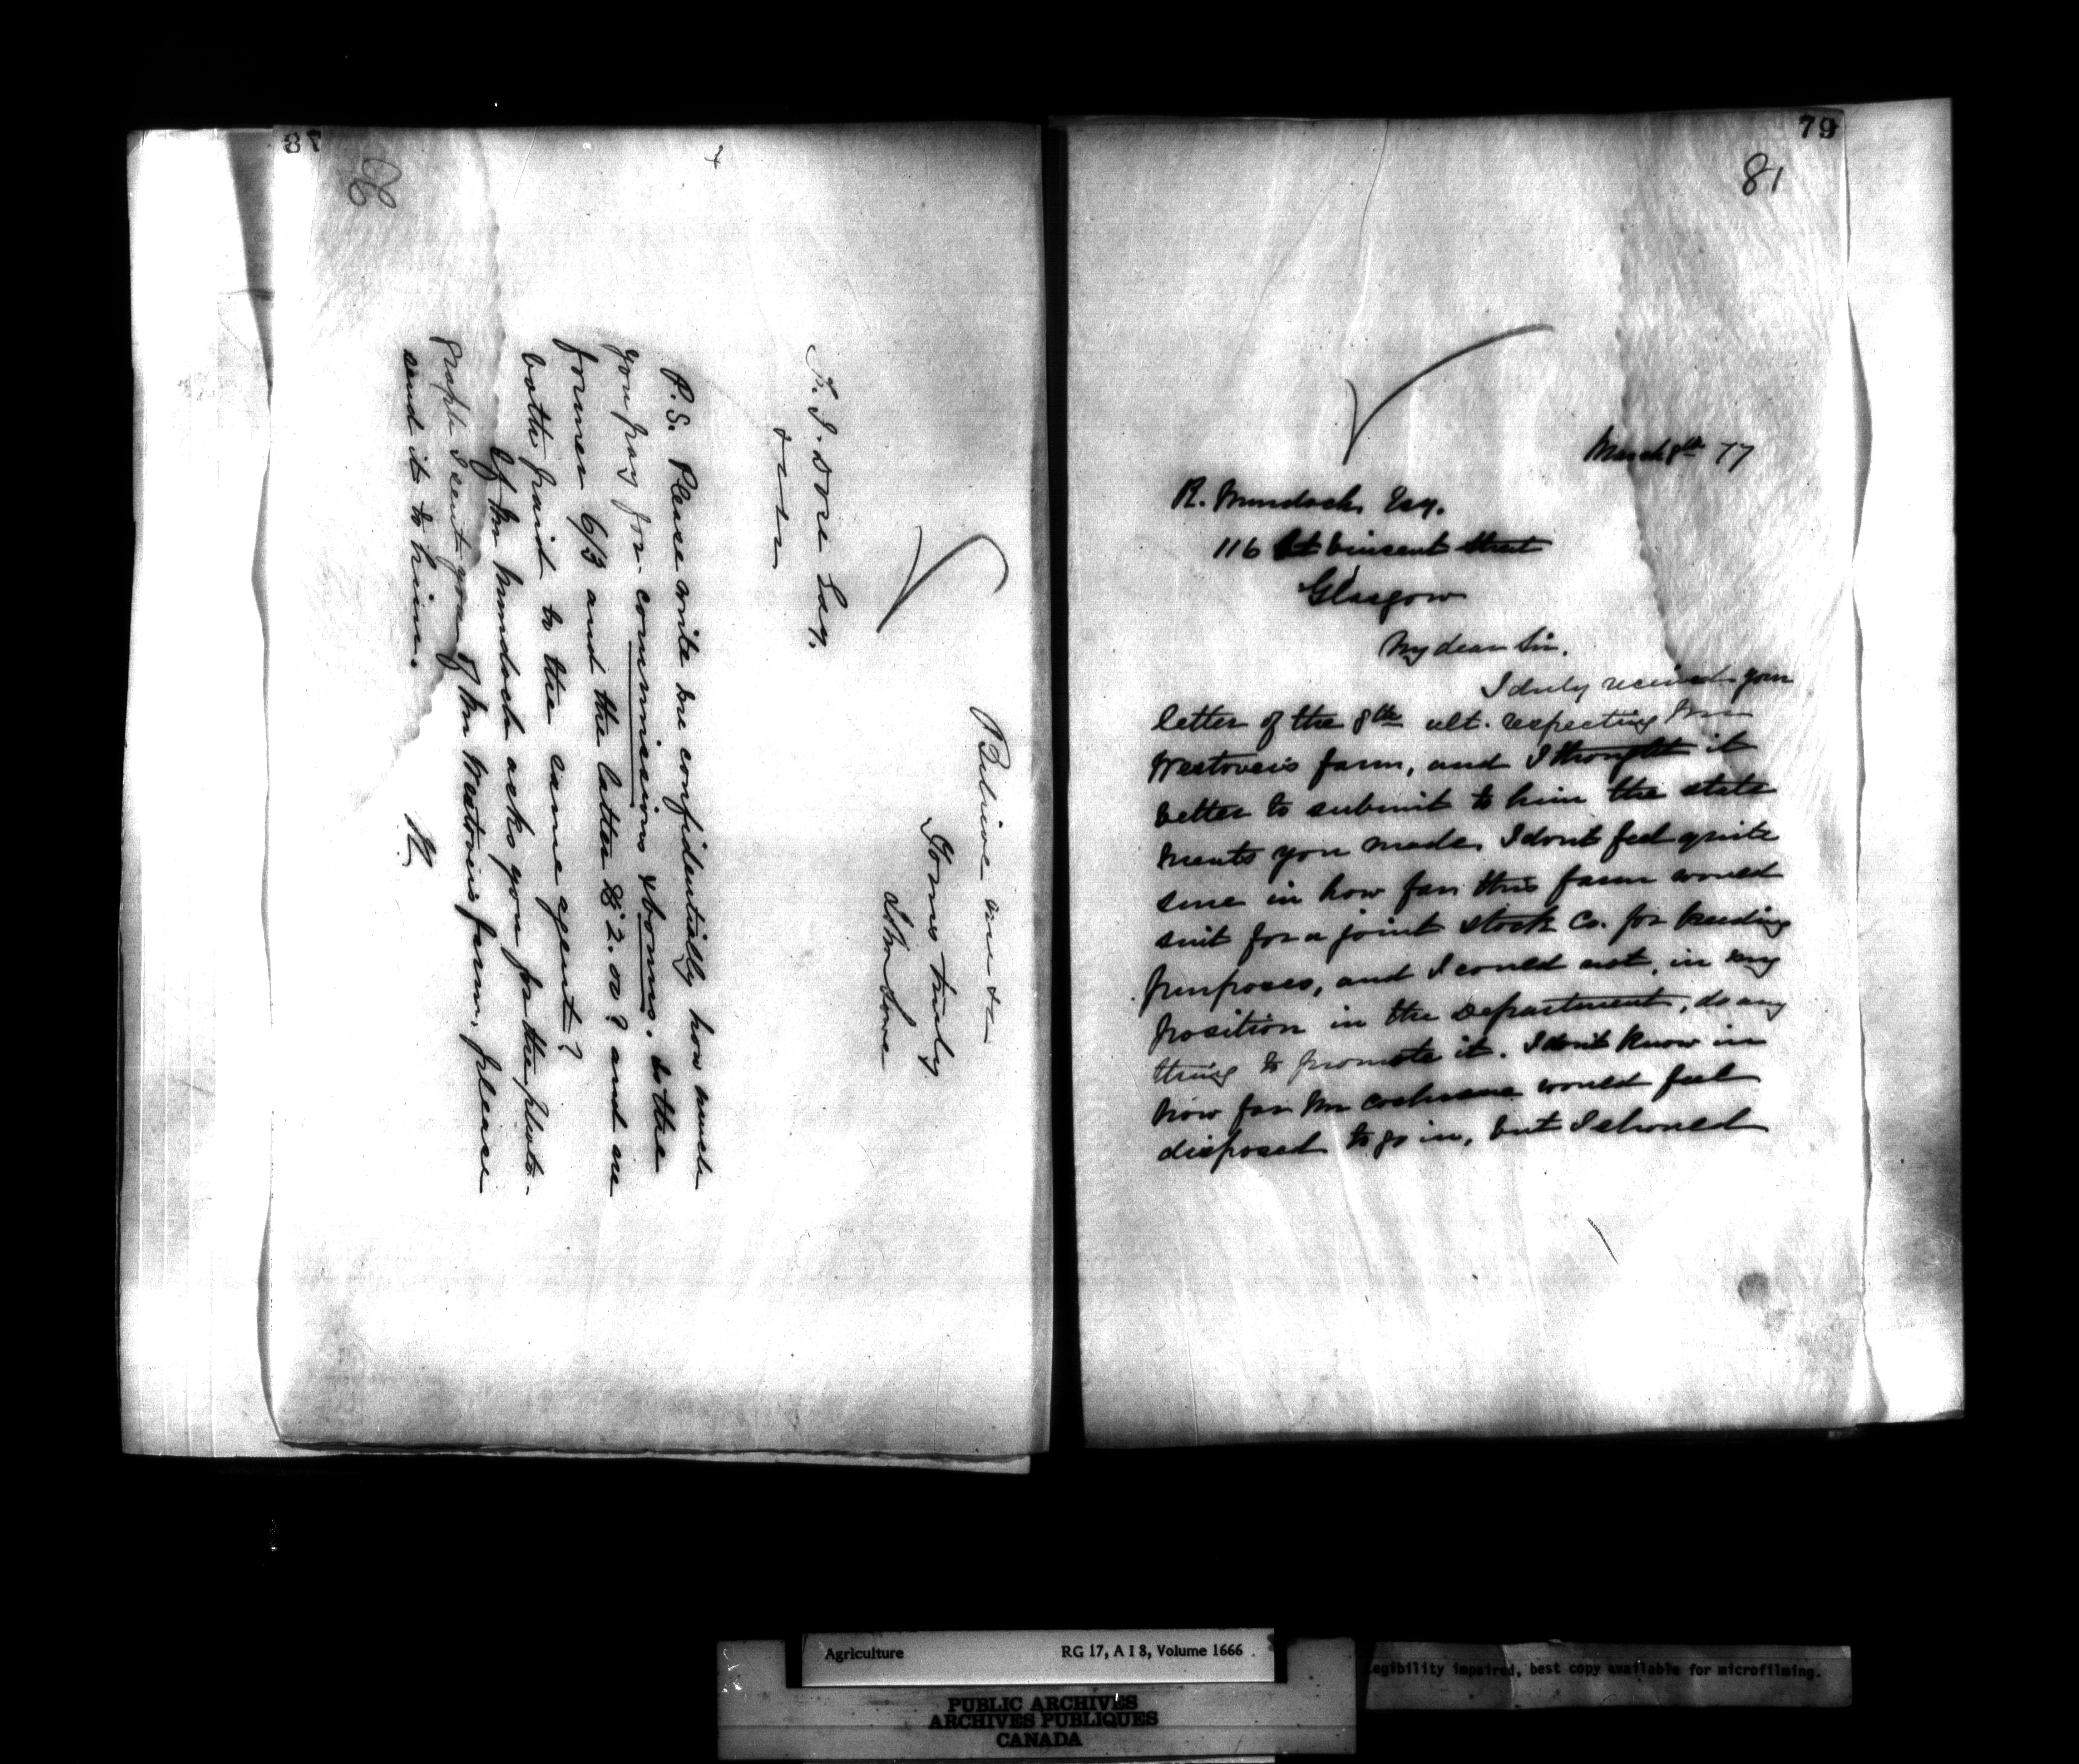 78
80
Believe me &c
Yours truly
John Lowe
T. J. Dore Esq.
&c &c &c
P.S. Please write me confidentially how much
you pay for commissions & bonus. Is the
former 6/3 and the latter $2.00? and are
both paid to the same agent?
If Mr Murdock asks you for the photo-
graph I sent you of Mr Westover's farm, please
send it to him.
79
81
March 8th 77
R. Murdock Esq.
116 St Vincent Street
Glasgow
My dear Sir,
I duly received your
letter of the 8th ult. respecting Mr
Westover's farm, and I thought it
better to submit to him the state
ments you made. I dont feel quite
sure in how far this farm would
suit for a joint stock Co. for feeding
purposes, and I could not, in my
position in the Department, do any
thing to promote it. I dont know in
how far Mr Cochrane would feel
disposed to go in, but I should
Agriculture RG 17, A I 8, Volume 1666
egibility impaired, best copy available for microfilming.
PUBLIC ARCHIVES
ARCHIVES PUBLIQUES
CANADA